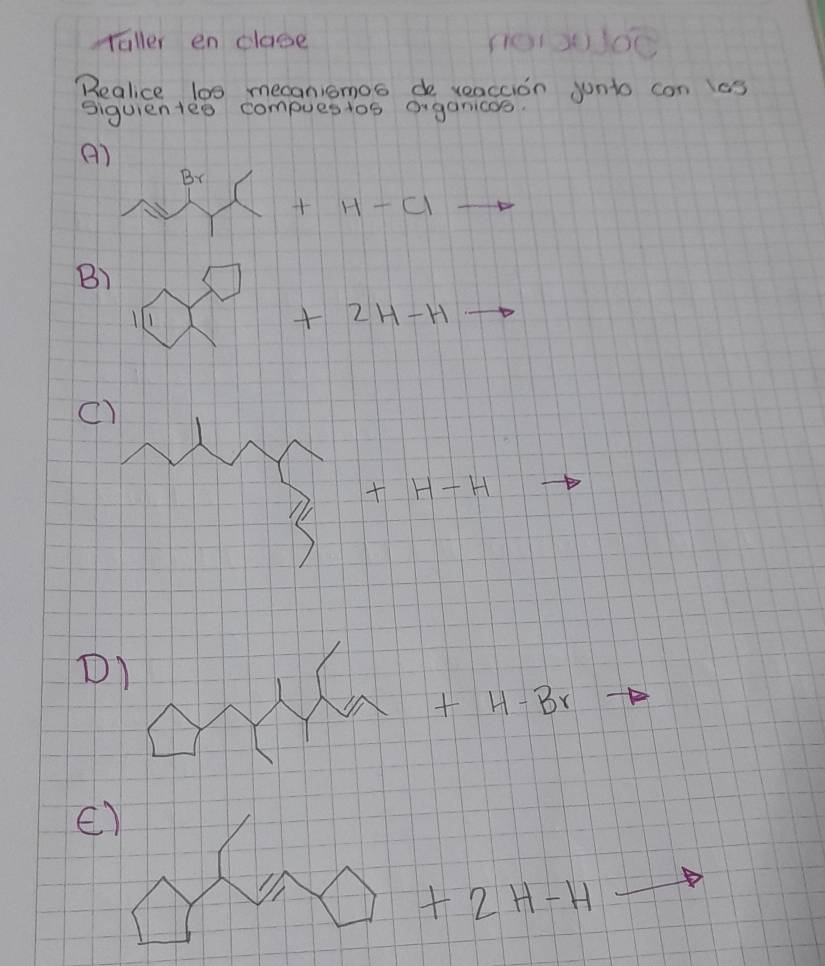 Taller en clase
Realice los mecanismos de reacción junto con los
siguientes compuestos organicos.
A)
Br
+ H-Cl →
B)
+ 2H-H →
C)
+ H-H →
D)
+ H-Br →
E)
+ 2H-H →